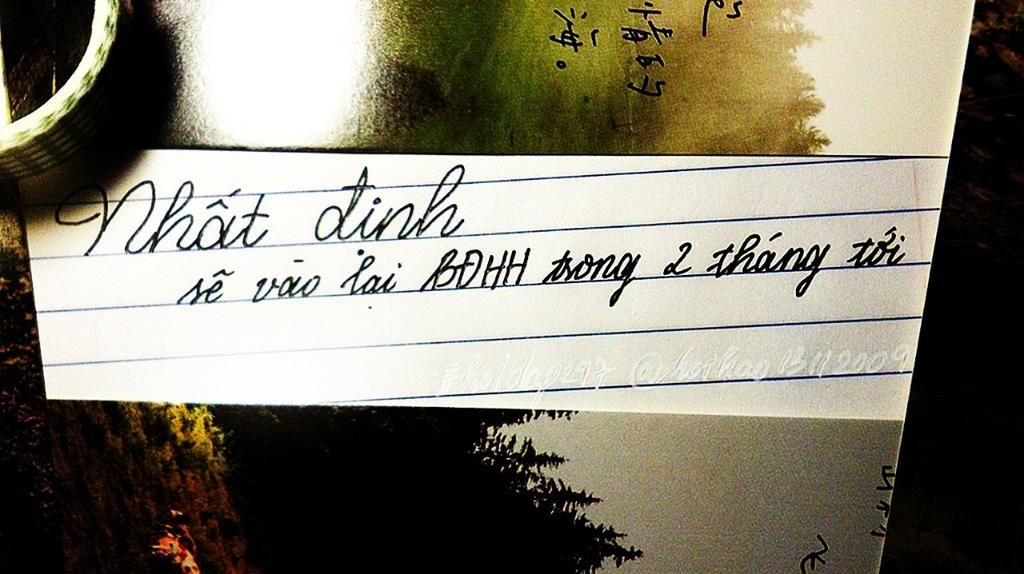 Nhất định
sẽ vào lại BĐHH trong 2 tháng tới